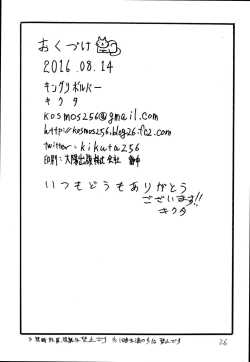 おくづけ
2016.08.14
キングリボルバー
キクタ
kosmos256@gmail.com
http://kosmos256.blog26.fc2.com
twitter: kikuta256
印刷: 太陽出版株式会社
いつもどうもありがとう
ございます!!
キクタ
26